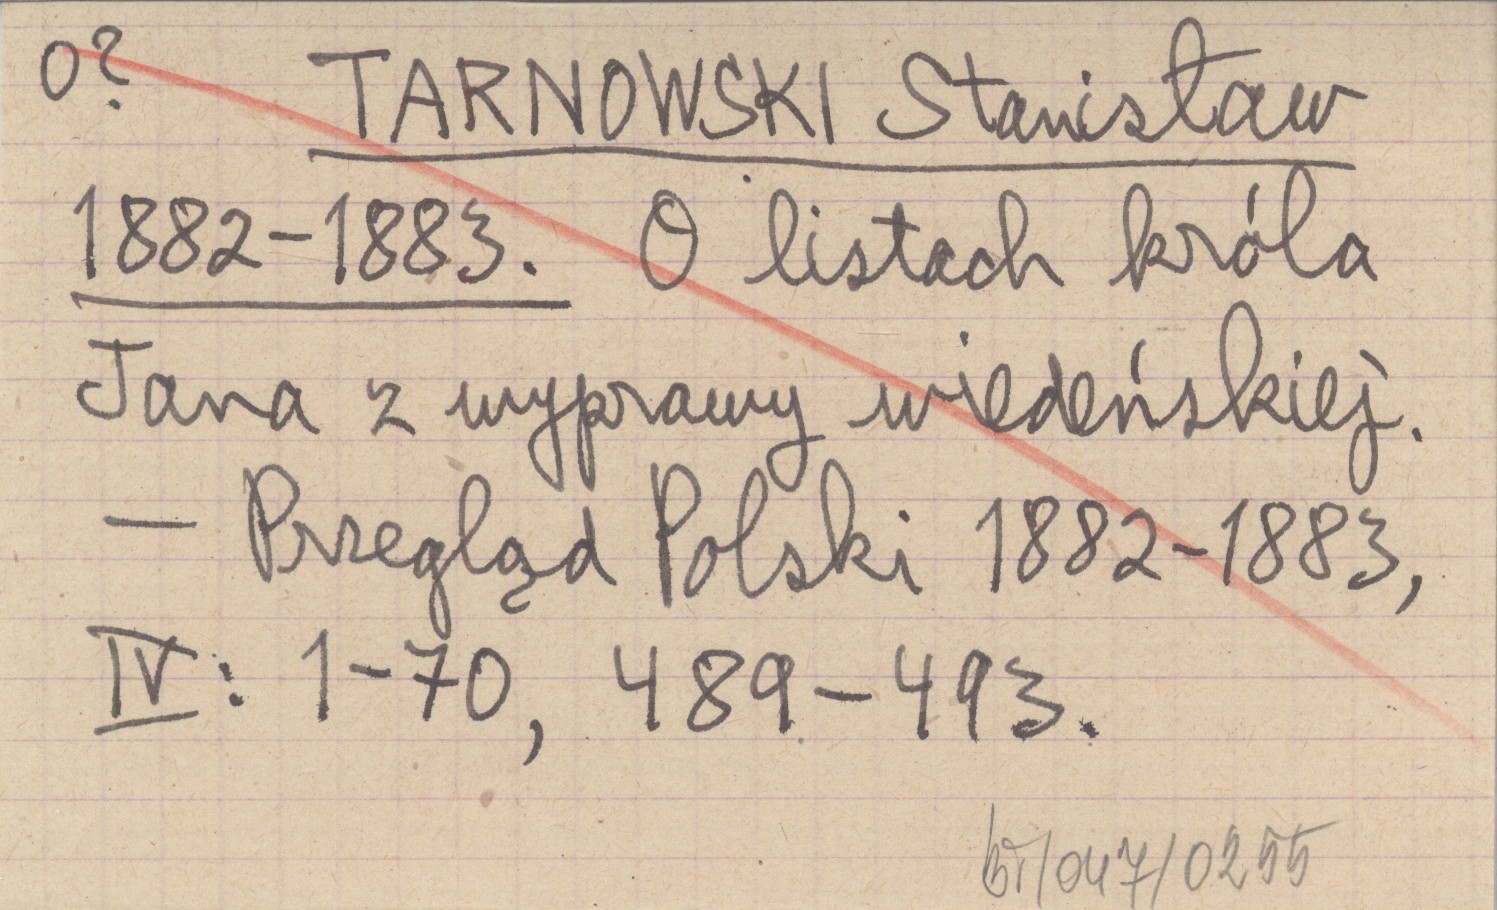 o? TARNOWSKI Stanisław
1882-1883. O listach króla
Jana z wyprawy wiedeńskiej.
— Przegląd Polski 1882-1883,
IV: 1-70, 489-493.
bt/047/0255